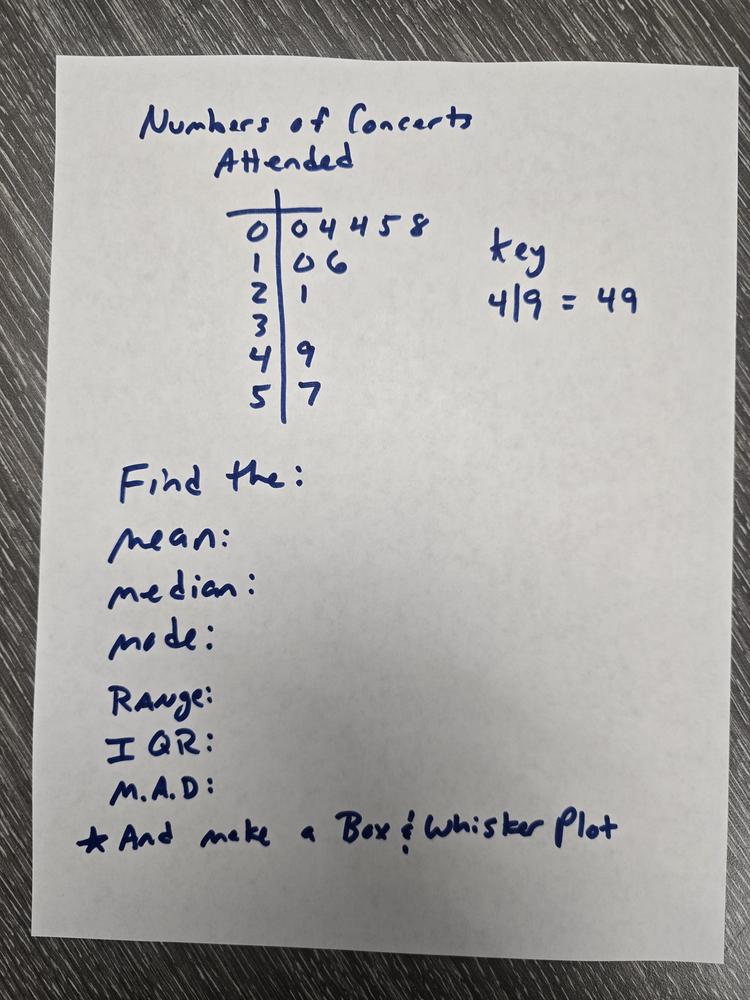 Numbers of Concerts
Attended
0 | 0 4 4 5 8
1 | 0 6
2 | 1
3 |
4 | 9
5 | 7
key
4|9 = 49
Find the:
mean:
median:
mode:
RANge:
IQR:
M.A.D:
* And make a Box & Whisker Plot